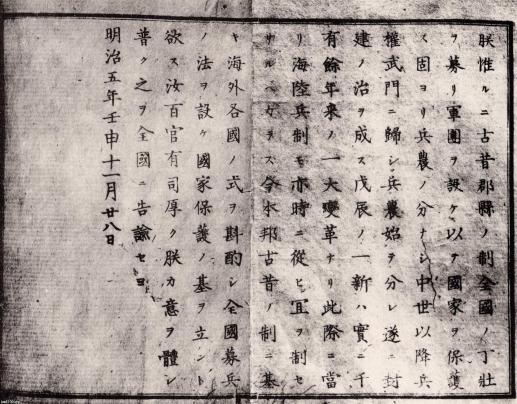 朕惟ルニ古昔郡縣ノ制全國ノ丁壯
ヲ募リ軍團ヲ設ケ以テ國家ヲ保護
ス固ヨリ兵農ノ分ナシ中世以降兵
權武門ニ歸シ兵農始テ分レ遂ニ封
建ノ治ヲ成ス戊辰ノ一新ハ實ニ千
有餘年来ノ一大變革ナリ此際ニ當
リ海陸兵制モ亦時ニ從ヒ宜ヲ制セ
サルヘカラス今本邦古昔ノ制ニ基
キ海外各國ノ式ヲ斟酌シ全國募兵
ノ法ヲ設ケ國家保護ノ基ヲ立ント
欲ス汝百官有司厚ク朕カ意ヲ體シ
普ク之ヲ全國ニ告諭セヨ
明治五年壬申十一月廿八日